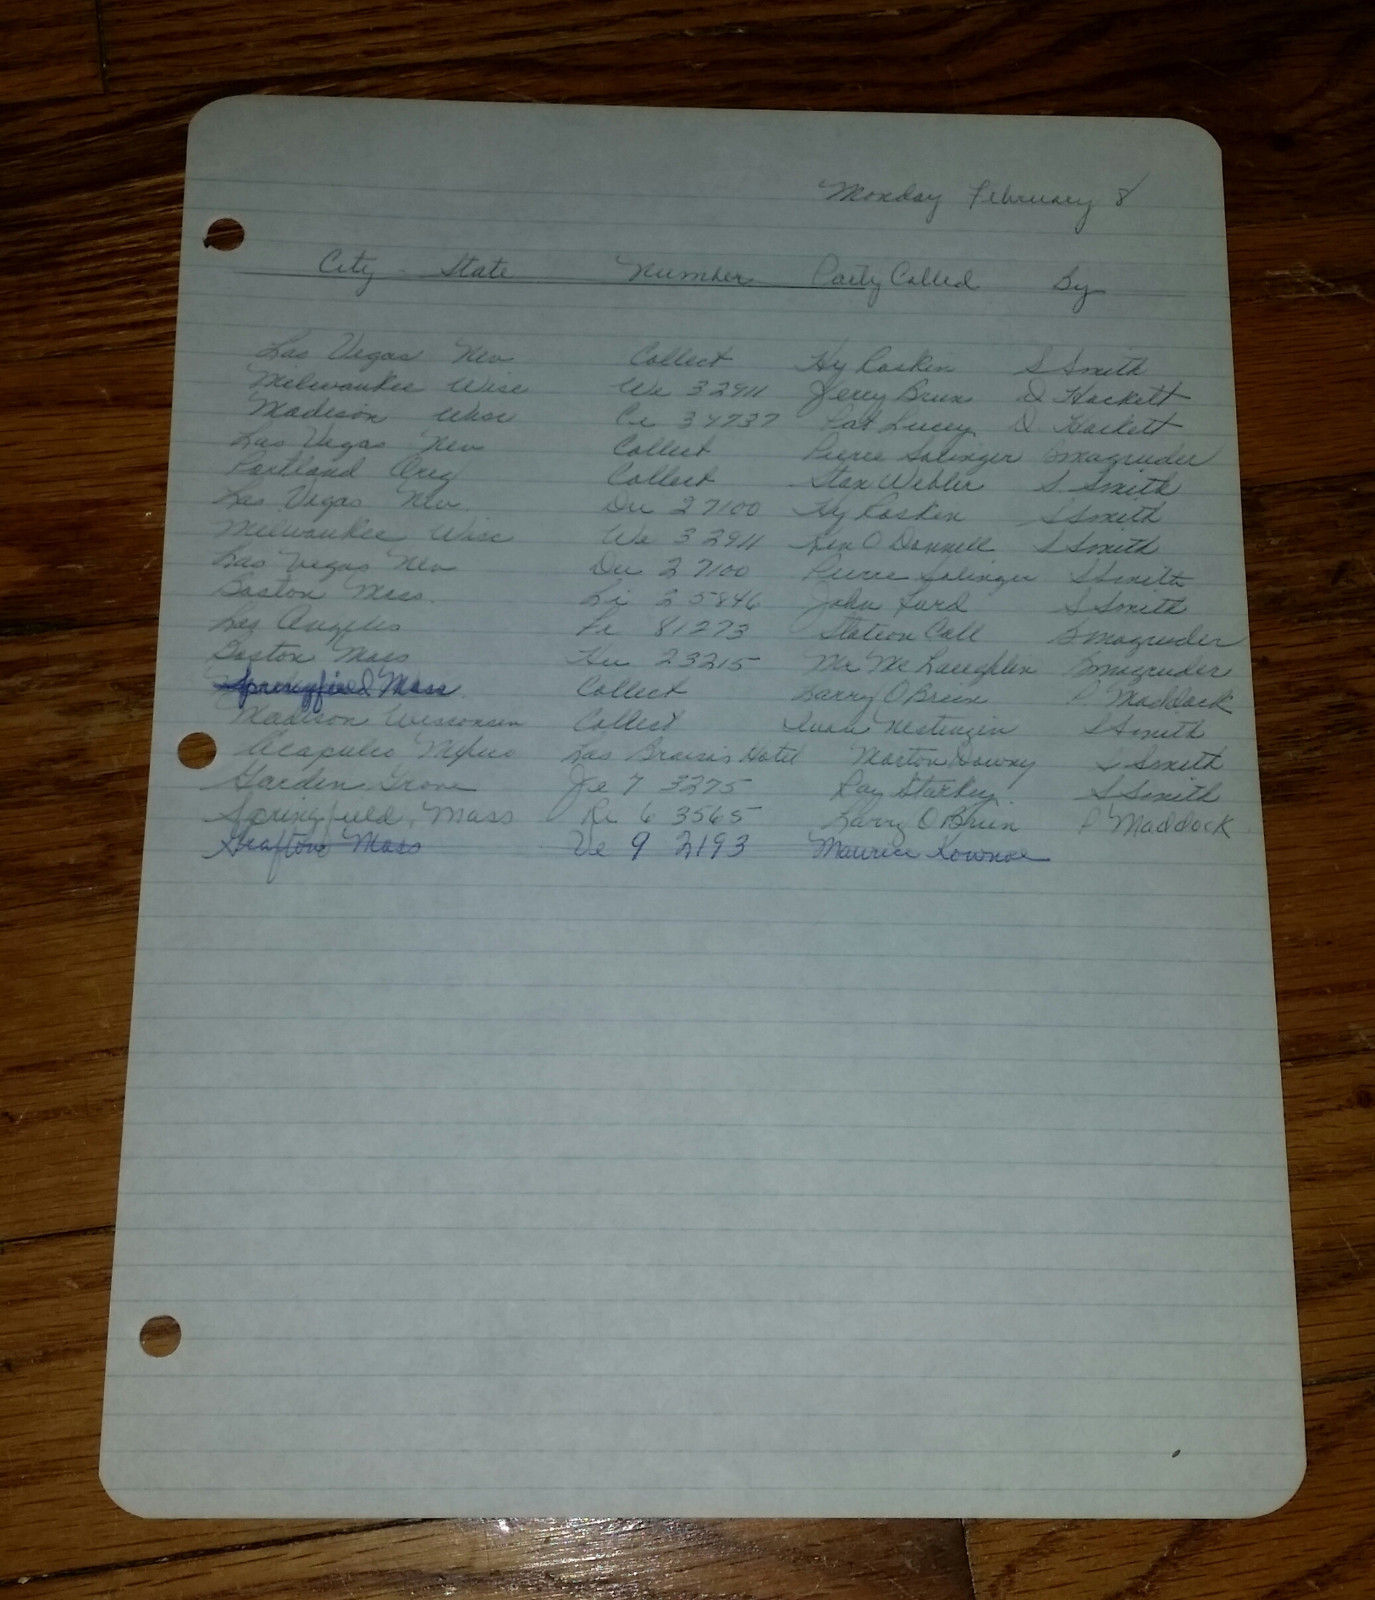 Monday February 8
City - State Number Party Called By
Las Vegas Nev Collect Hy Raskin S Smith
Milwaukee Wisc We 32911 Jerry Bruno D Hackett
Madison Wisc Ce 34737 Pat Lucey D Hackett
Las Vegas Nev Collect Pierre Salinger B Magruder
Portland Oreg Collect Stan Weber S Smith
Las Vegas Nev Du 27100 Hy Raskin S Smith
Milwaukee Wisc We 32911 Ken O Donnell S Smith
Las Vegas Nev Du 27100 Pierre Salinger S Smith
Boston Mass. Li 25846 John Ford S Smith
Los Angeles 81273 Station Call B Magruder
Boston Mass Hu 23215 Mr Mc Laughlin B Magruder
Springfield Mass Collect Larry O Brien P Maddock
Madison Wisconsin Collect Ivan Nestingen S Smith
Acapulco Mexico Las Brisis Hotel Morton Downy S Smith
Garden Grove Je 7 3275 Ray Starkey S Smith
Springfield, Mass Re 6 3565 Larry O Brien P Maddock
Grafton Mass Ve 9 2193 Maurice